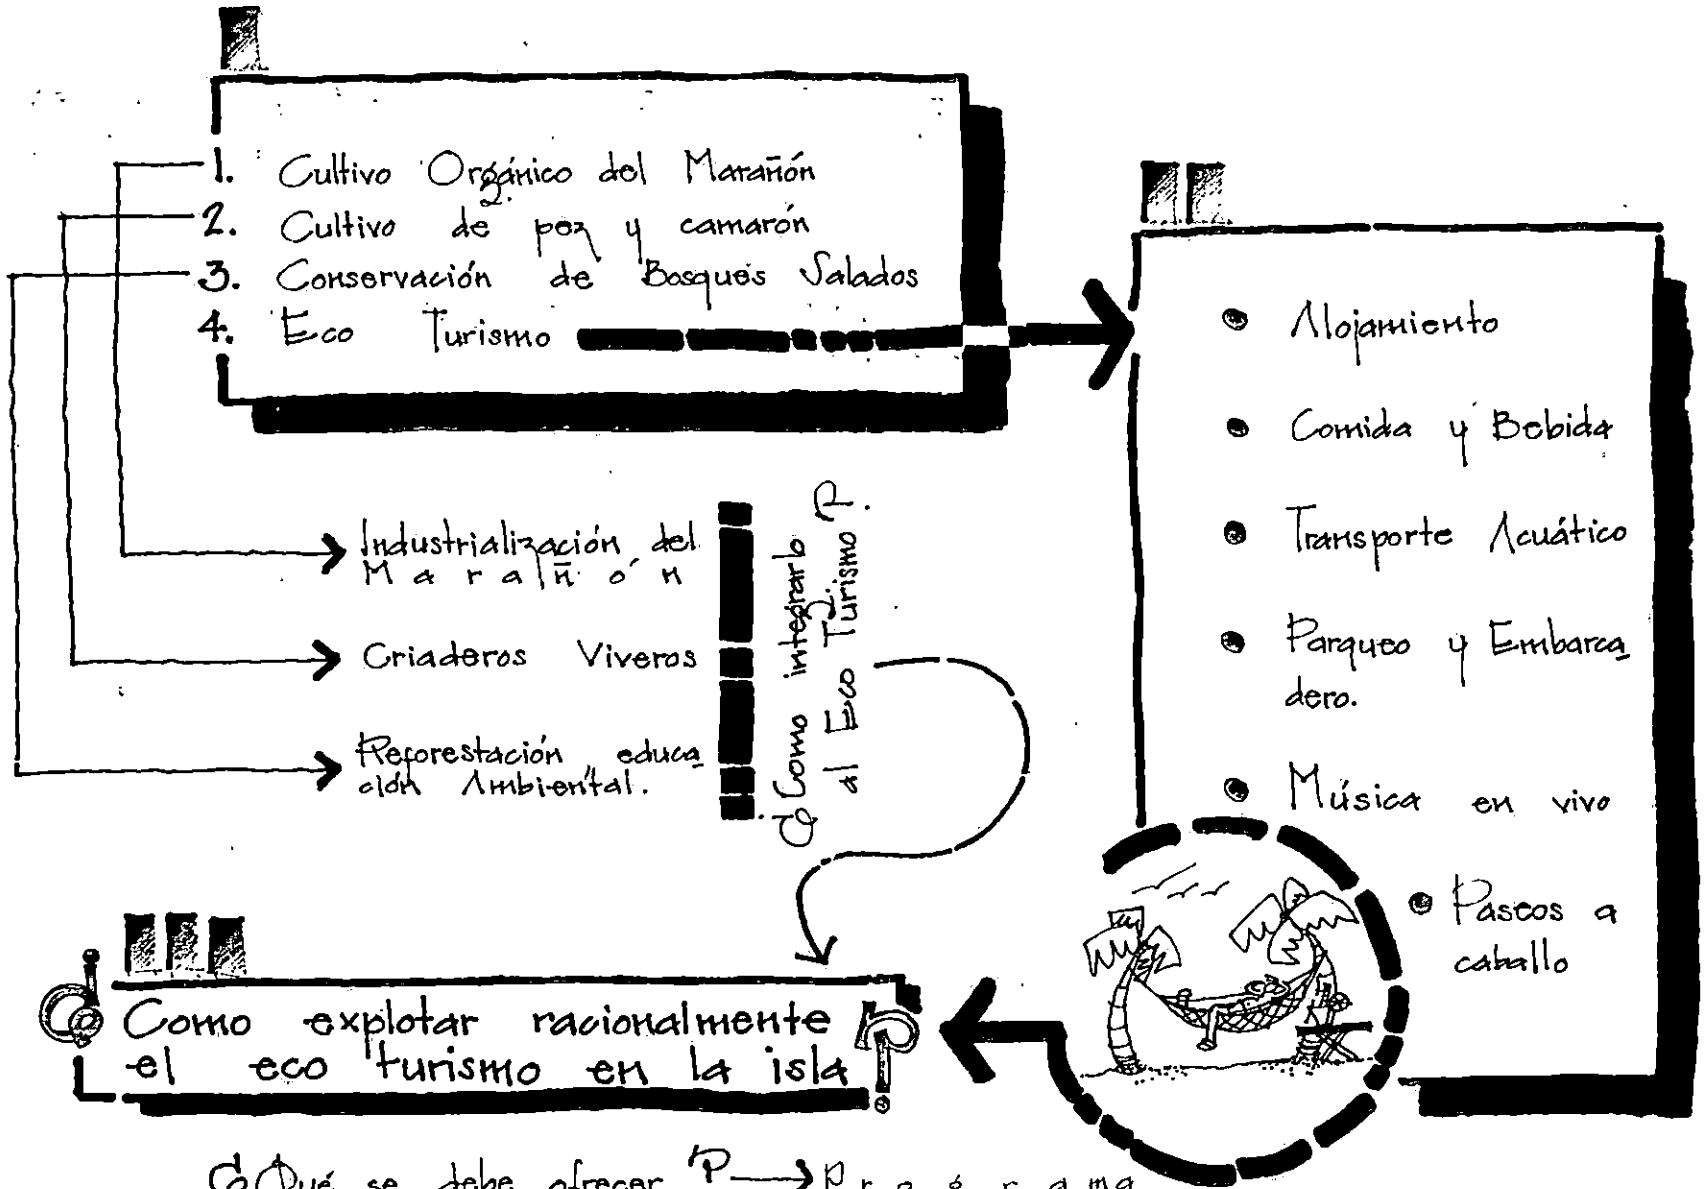 1. Cultivo Orgánico del Marañón
2. Cultivo de pez y camarón
3. Conservación de Bosques Salados
4. Eco Turismo
Industrialización del
Marañón
Criaderos Viveros
Reforestación educa
ción Ambiental.
¿Como integrarlo
al Eco Turismo?.
• Alojamiento
• Comida y Bebida
• Transporte Acuático
• Parqueo y Embarca
dero.
• Música en vivo
• Paseos a
caballo
¿Como explotar racionalmente
el eco turismo en la isla?
¿Qué se debe ofrecer? → Programa